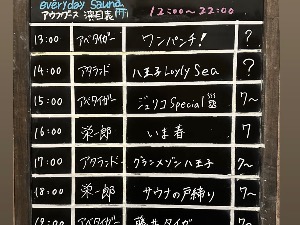 everyday Sauna
アウフグース 演目表 12:00〜22:00
13:00 アベタイガー ワンパンチ! ?
14:00 アタランド 八王子Löyly Sea ?
15:00 アベタイガー ジュリコSpecial 7〜
16:00 栄一郎 いま春 7
17:00 アタランド グランメゾン八王子 7〜
18:00 栄一郎 サウナの戸締り 7〜
アベタイガー 藤井タイガ